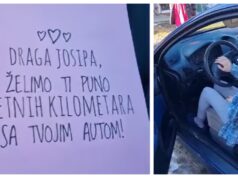 DRAGA JOSIPA,
ŽELIMO TI PUNO
SRETNIH KILOMETARA
SA TVOJIM AUTOM!